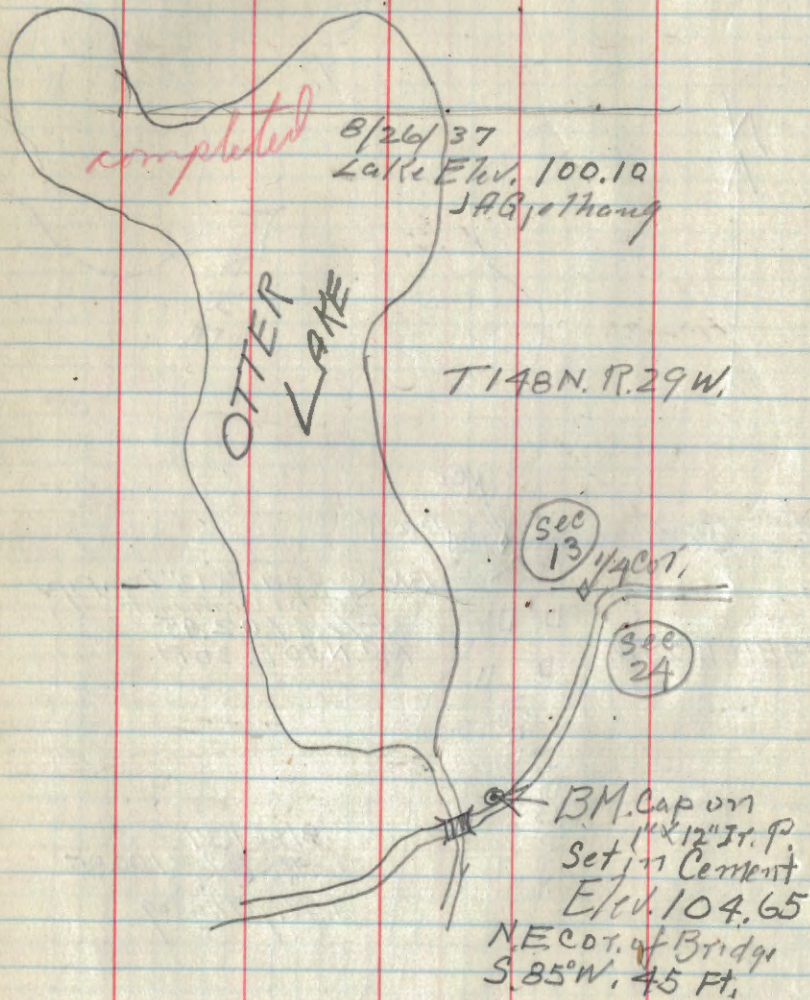 completed
8/26/37
Lake Elev. 100.10
OTTER
LAKE
T148N. R.29W.
Sec
13
1/4 Cor.
Sec
24
B.M. Cap on
1"x12" Ir. P.
Set in Cement
Elev. 104.65
N.E. Cor. of Bridge
S. 85° W. 45 Ft.